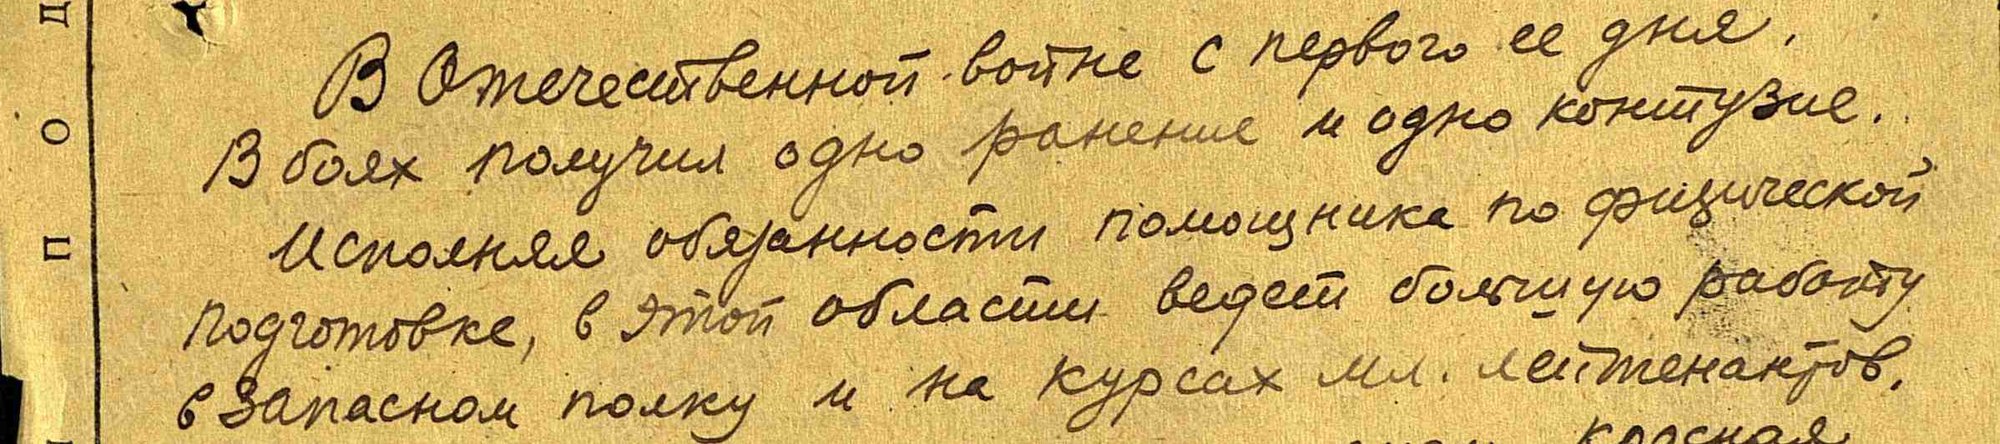 В Отечественной войне с первого ее дня.
В боях получил одно ранение и одно контузие.
Исполняя обязанности помощника по физической
подготовке, в этой области ведет большую работу
в запасном полку и на курсах мл. лейтенантов.
красная
П О Д